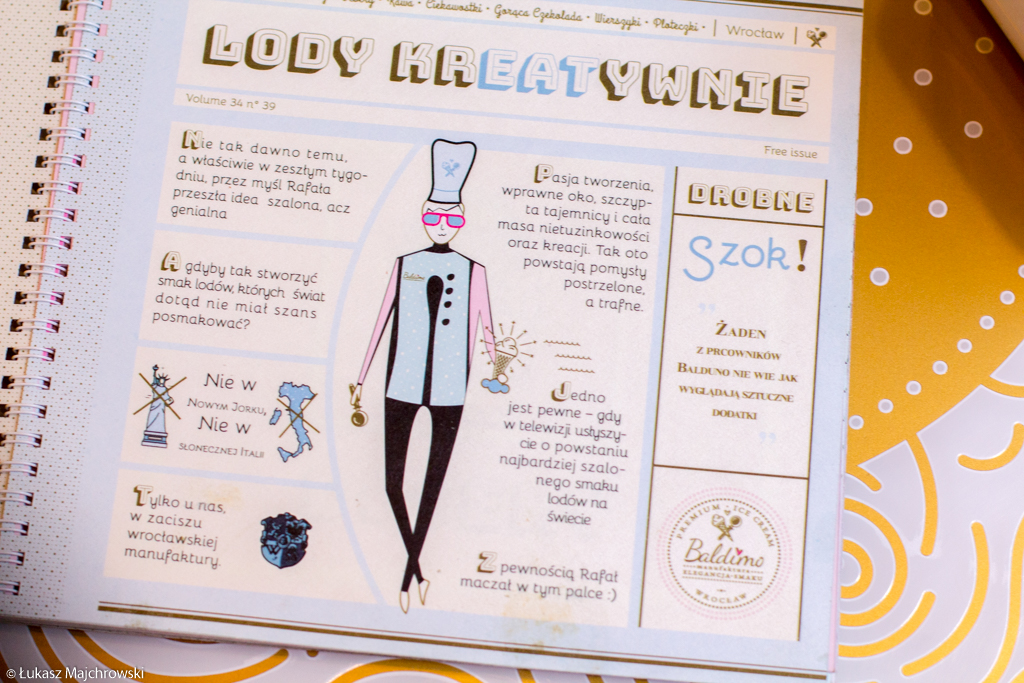 Kawa • Ciekawostki • Gorąca Czekolada • Wierszyki • Ploteczki • | Wrocław |
LODY KREATYWNIE
Volume 34 n° 39
Free issue
Nie tak dawno temu,
a właściwie w zeszłym tygo-
dniu, przez myśl Rafała
przeszła idea szalona, acz
genialna
A gdyby tak stworzyć
smak lodów, których świat
dotąd nie miał szans
posmakować?
Nie w
Nowym Jorku,
Nie w
słonecznej Italii
Tylko u nas,
w zaciszu
wrocławskiej
manufaktury.
Baldimo
Pasja tworzenia,
wprawne oko, szczyp-
ta tajemnicy i cała
masa nietuzinkowości
oraz kreacji. Tak oto
powstają pomysły
postrzelone,
a trafne.
Jedno
jest pewne – gdy
w telewizji usłyszy-
cie o powstaniu
najbardziej szalo-
nego smaku
lodów na
świecie
Z pewnością Rafał
maczał w tym palce :)
DROBNE
Szok!
„
Żaden
z prcowników
Balduno nie wie jak
wyglądają sztuczne
dodatki
”
PREMIUM ICE CREAM
Baldimo
manufaktura
ELEGANCJA SMAKU
WROCŁAW
© Łukasz Majchrowski